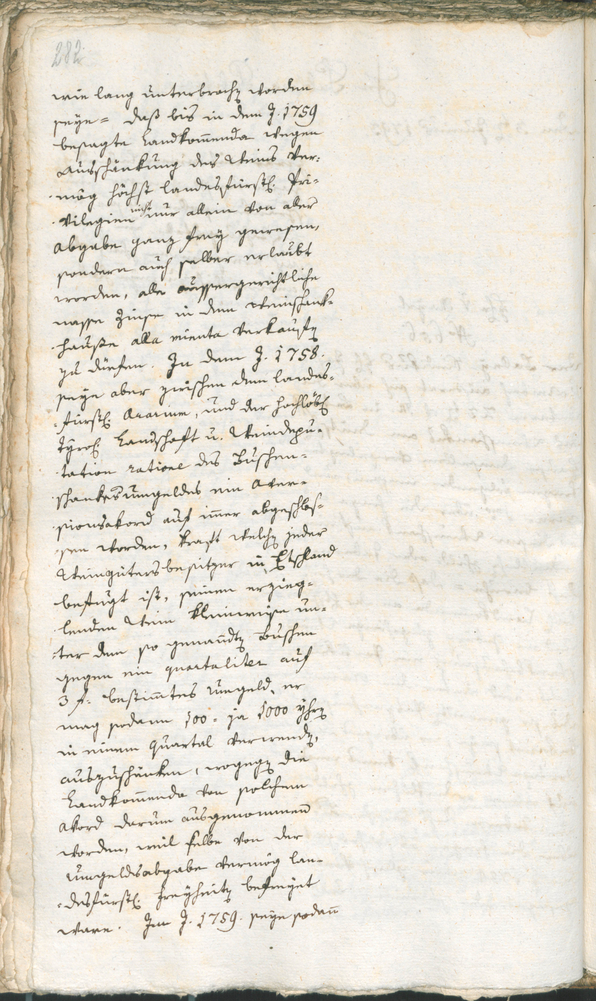 282
wie lang unterbrochen worden
seye = daß bis in dem J. 1759
besagte Landkom̃enda wegen
Ausschänkung des Weins ver-
mög höchst landesfürstl. Pri-
vilegien nicht nur allein von aller
Abgabe ganz frey gewesen,
sondern auch selber erlaubt
worden, alle aussergerichtliche
nasse Zinse in dem Weinschank-
hause alla minuta verkaufen
zu dürfen. In dem J. 1758.
seye aber zwischen dem landes-
fürstl. Ararium, und der hochlöbl.
tyrol. Landschaft u. Weindepu-
tation ratione des Buschen-
schanksumgeldes ein Aver-
sionsakord auf im̃er abgeschlos-
sen worden, kraft welchen jeder
Weingütersbesitzer in Etschland
befugt ist, seinen erzieg-
lenden Wein kleinweise un-
ter dem so genannten Buschen
gegen ein quartaliter auf
3 f. bestim̃tes Umgeld, er
mag sodann 100 = ja 1000 yhrn
in einem Quartal verwenden,
auszuschänken, wogegen die
Landkom̃enda von solchem
Akord darum ausgenommen
worden, weil selbe von der
Umgeldsabgabe vermög lan-
desfürstl. Freyheiten befreyet
ware. Im J. 1759. seye sodann